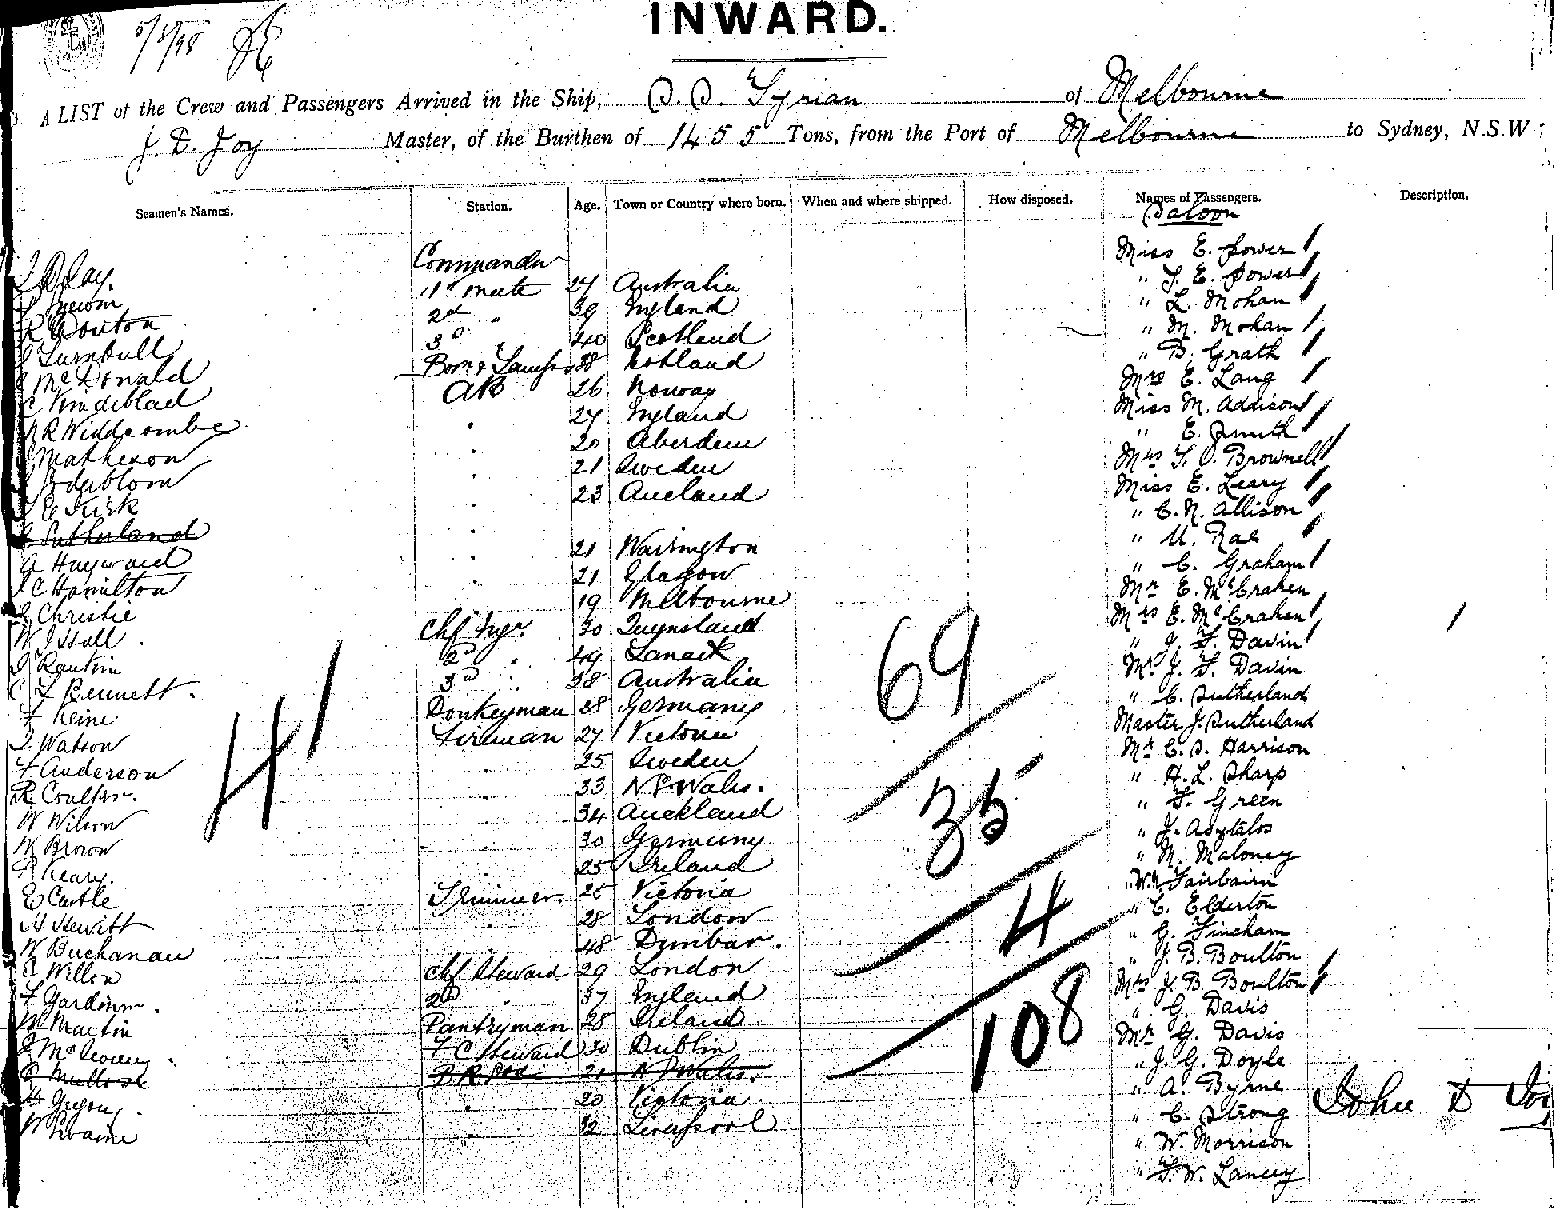 INWARD.
5/3/98
A LIST of the Crew and Passengers Arrived in the Ship, S.S. Syrian of Melbourne
J. D. Joy Master, of the Burthen of 1455 Tons, from the Port of Melbourne to Sydney, N.S.W
Seamen's Names. Station. Age. Town or Country where born. When and where shipped. How disposed. Names of Passengers. Description.
Saloon
J D Joy. Commander Miss E. Power
1st Mate 27 Australia " T. E. Power
2d " 39 England " L. Mohan
Turnbull 3d " 40 Scotland " M. Mohan
McDonald 38 " B. Grath
AB 26 Norway Mrs E. Lang
R Widdecombe 27 England Miss M. Addison
Matheson " 20 Aberdeen " E. Smith
" 21 Sweden Mrs T. O. Brownell
Kirk " 23 Miss E. Leary
Sutherland " C. N. Allison
A Hayward " 21 Warrington " U. Rae
C Hamilton " 21 Glasgow " C. Graham
Christie " 19 Melbourne Mr E. McCraken
W J Hall Chf Engr. 30 Queensland Mrs E. McCraken
Rankin 2d " 49 Lanark " J. T. Davin
Bennett 3d " 38 Australia Mr J. T. Davin
Heine Donkeyman 28 Germany " C. Sutherland
Watson Fireman 27 Victoria Master J. Sutherland
Anderson 25 Sweden Mr C. S. Harrison
R Coulter 33 N S Wales. " H. L. Sharp
W Wilson 34 Auckland " T. Green
W Brown 30 Germany
25 Ireland " M. Maloney
E Castle Trimmer 26 Victoria " W. Fairbairn
H Hewitt 28 London " C. Elderton
W Buchanan 48 Dunbar. " G. Fincham
Chf Steward 29 London " J. B. Boulton
2d " 37 England Mrs J. B. Boulton
W Martin Pantryman 28 Ireland " G. Davis
F C Steward 30 Dublin Mr G. Davis
21 N S Wales. " J. G. Doyle
20 Victoria " A. Byrne
32 Liverpool " C. Strong
" W. Morrison
" T. W. Lancey
41
69
35
4
108
John D Joy